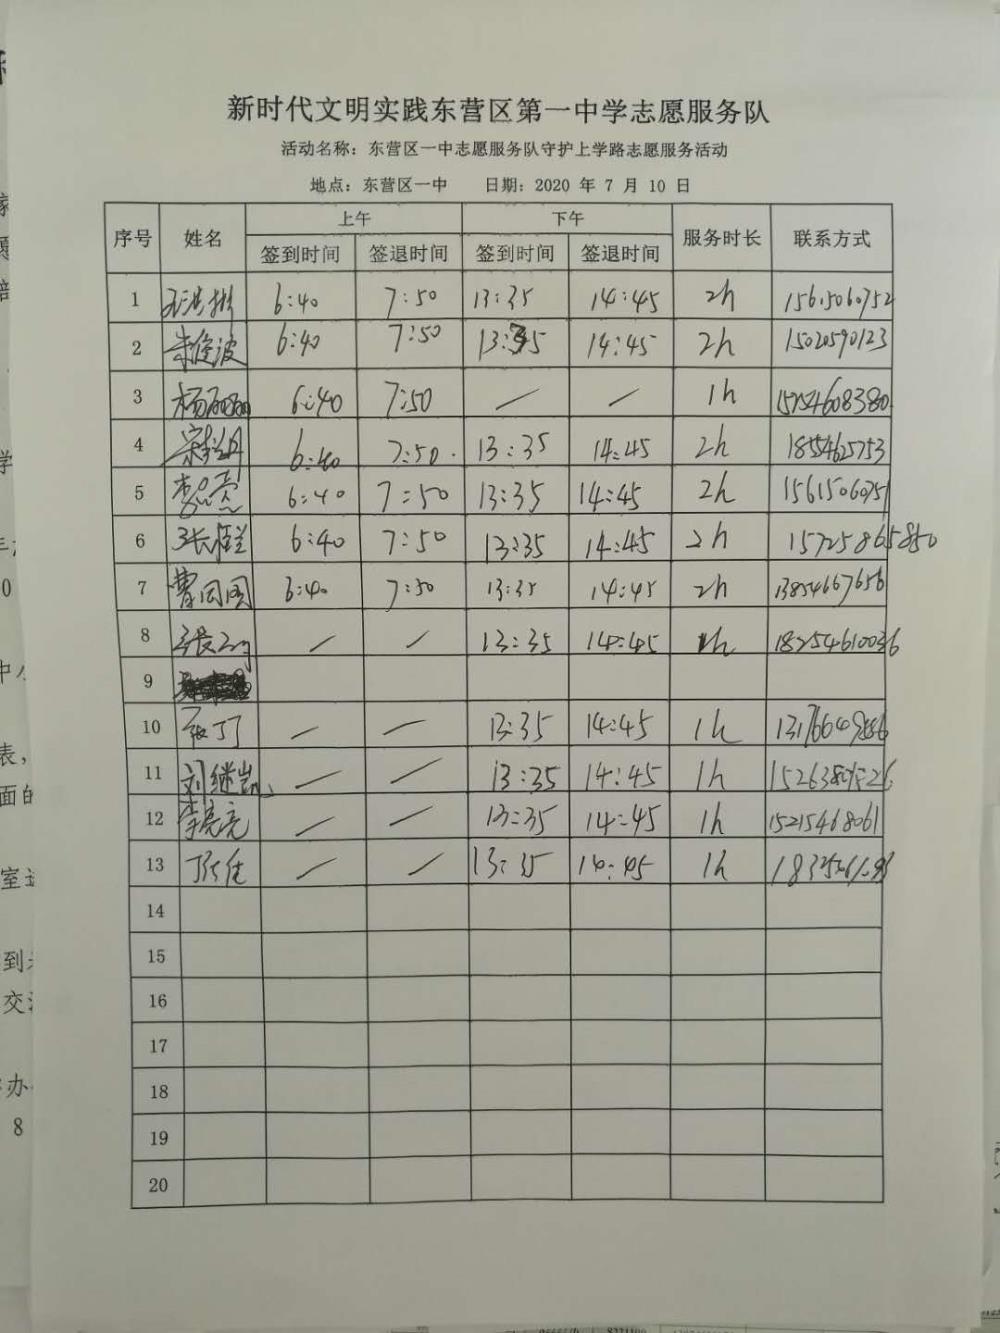 新时代文明实践东营区第一中学志愿服务队
活动名称：东营区一中志愿服务队守护上学路志愿服务活动
地点：东营区一中 日期：2020 年 7 月 10 日
序号 姓名 上午 下午 服务时长 联系方式
签到时间 签退时间 签到时间 签退时间
1 6:40 7:50 13:35 14:45 2h 15615060752
2 朱俊波 6:40 7:50 13:35 14:45 2h 15020590123
3 杨丽丽 6:40 7:50 — — 1h 15254608380
4 6:40 7:50 13:35 14:45 2h 18554625753
5 6:40 7:50 13:35 14:45 2h 15615060751
6 6:40 7:50 13:35 14:45 2h 15725865850
7 曹园园 6:40 7:50 13:35 14:45 2h 13854667656
8 — — 13:35 14:45 1h 18254610036
9
10 — — 13:35 14:45 1h
11 刘继凯 — — 13:35 14:45 1h
12 李亮亮 — — 13:35 14:45 1h 15215468061
13 — — 13:35 14:45 1h
14
15
16
17
18
19
20